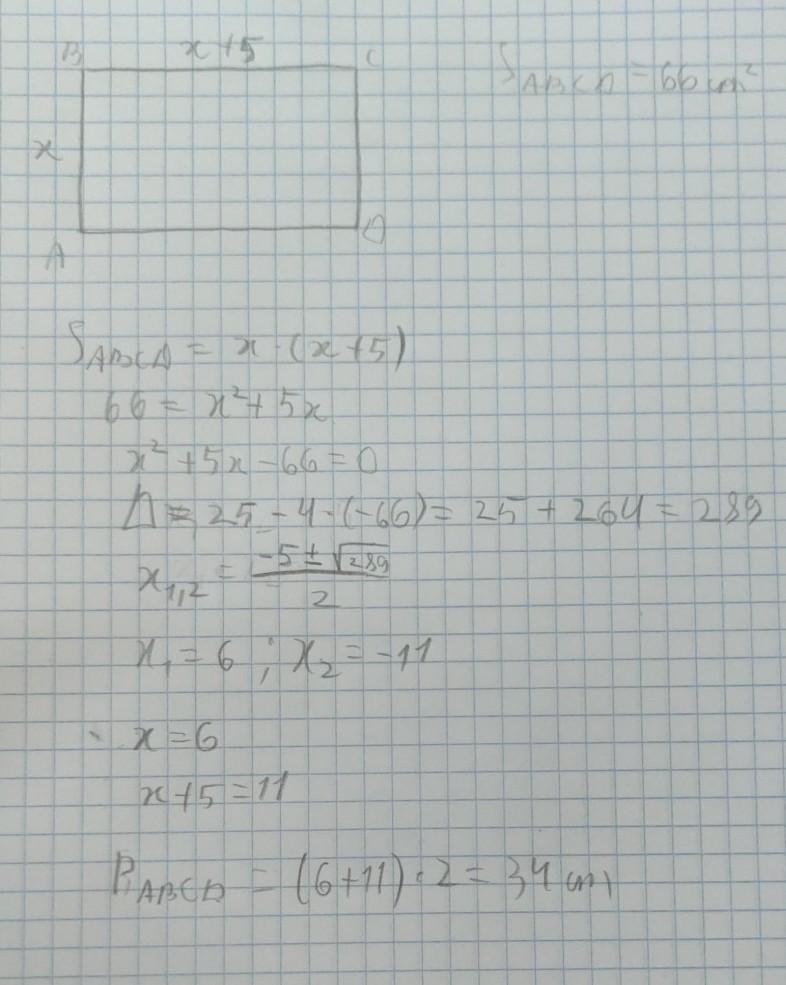 B x+5 C
S_ABCD = 66 cm²
x
A D
S_ABCD = x·(x+5)
66 = x²+5x
x²+5x-66=0
Δ = 25-4·(-66)=25+264=289
x_1,2 = (-5±√289)/2
x_1=6 ; x_2=-11
x=6
x+5=11
P_ABCD = (6+11)·2=34 cm